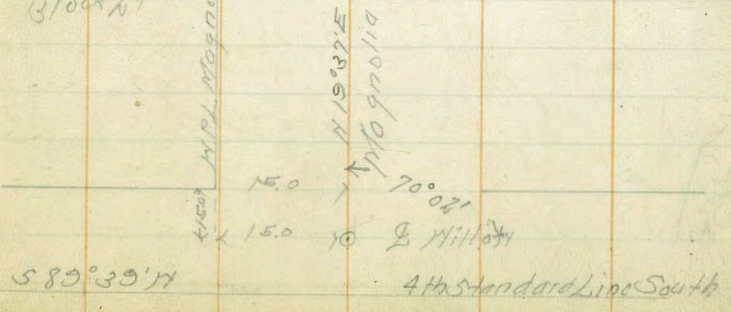 Block 21
WPL Magno
N 19°37'E
Magnolia
15.0 70°02'
15.0
15.0 ℄ Willow
S 89°39'W 4th Standard Line South